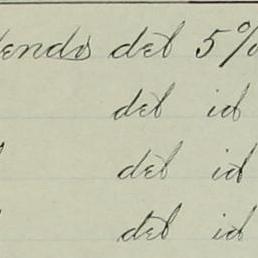 endo del 5%
del id
del id
del id